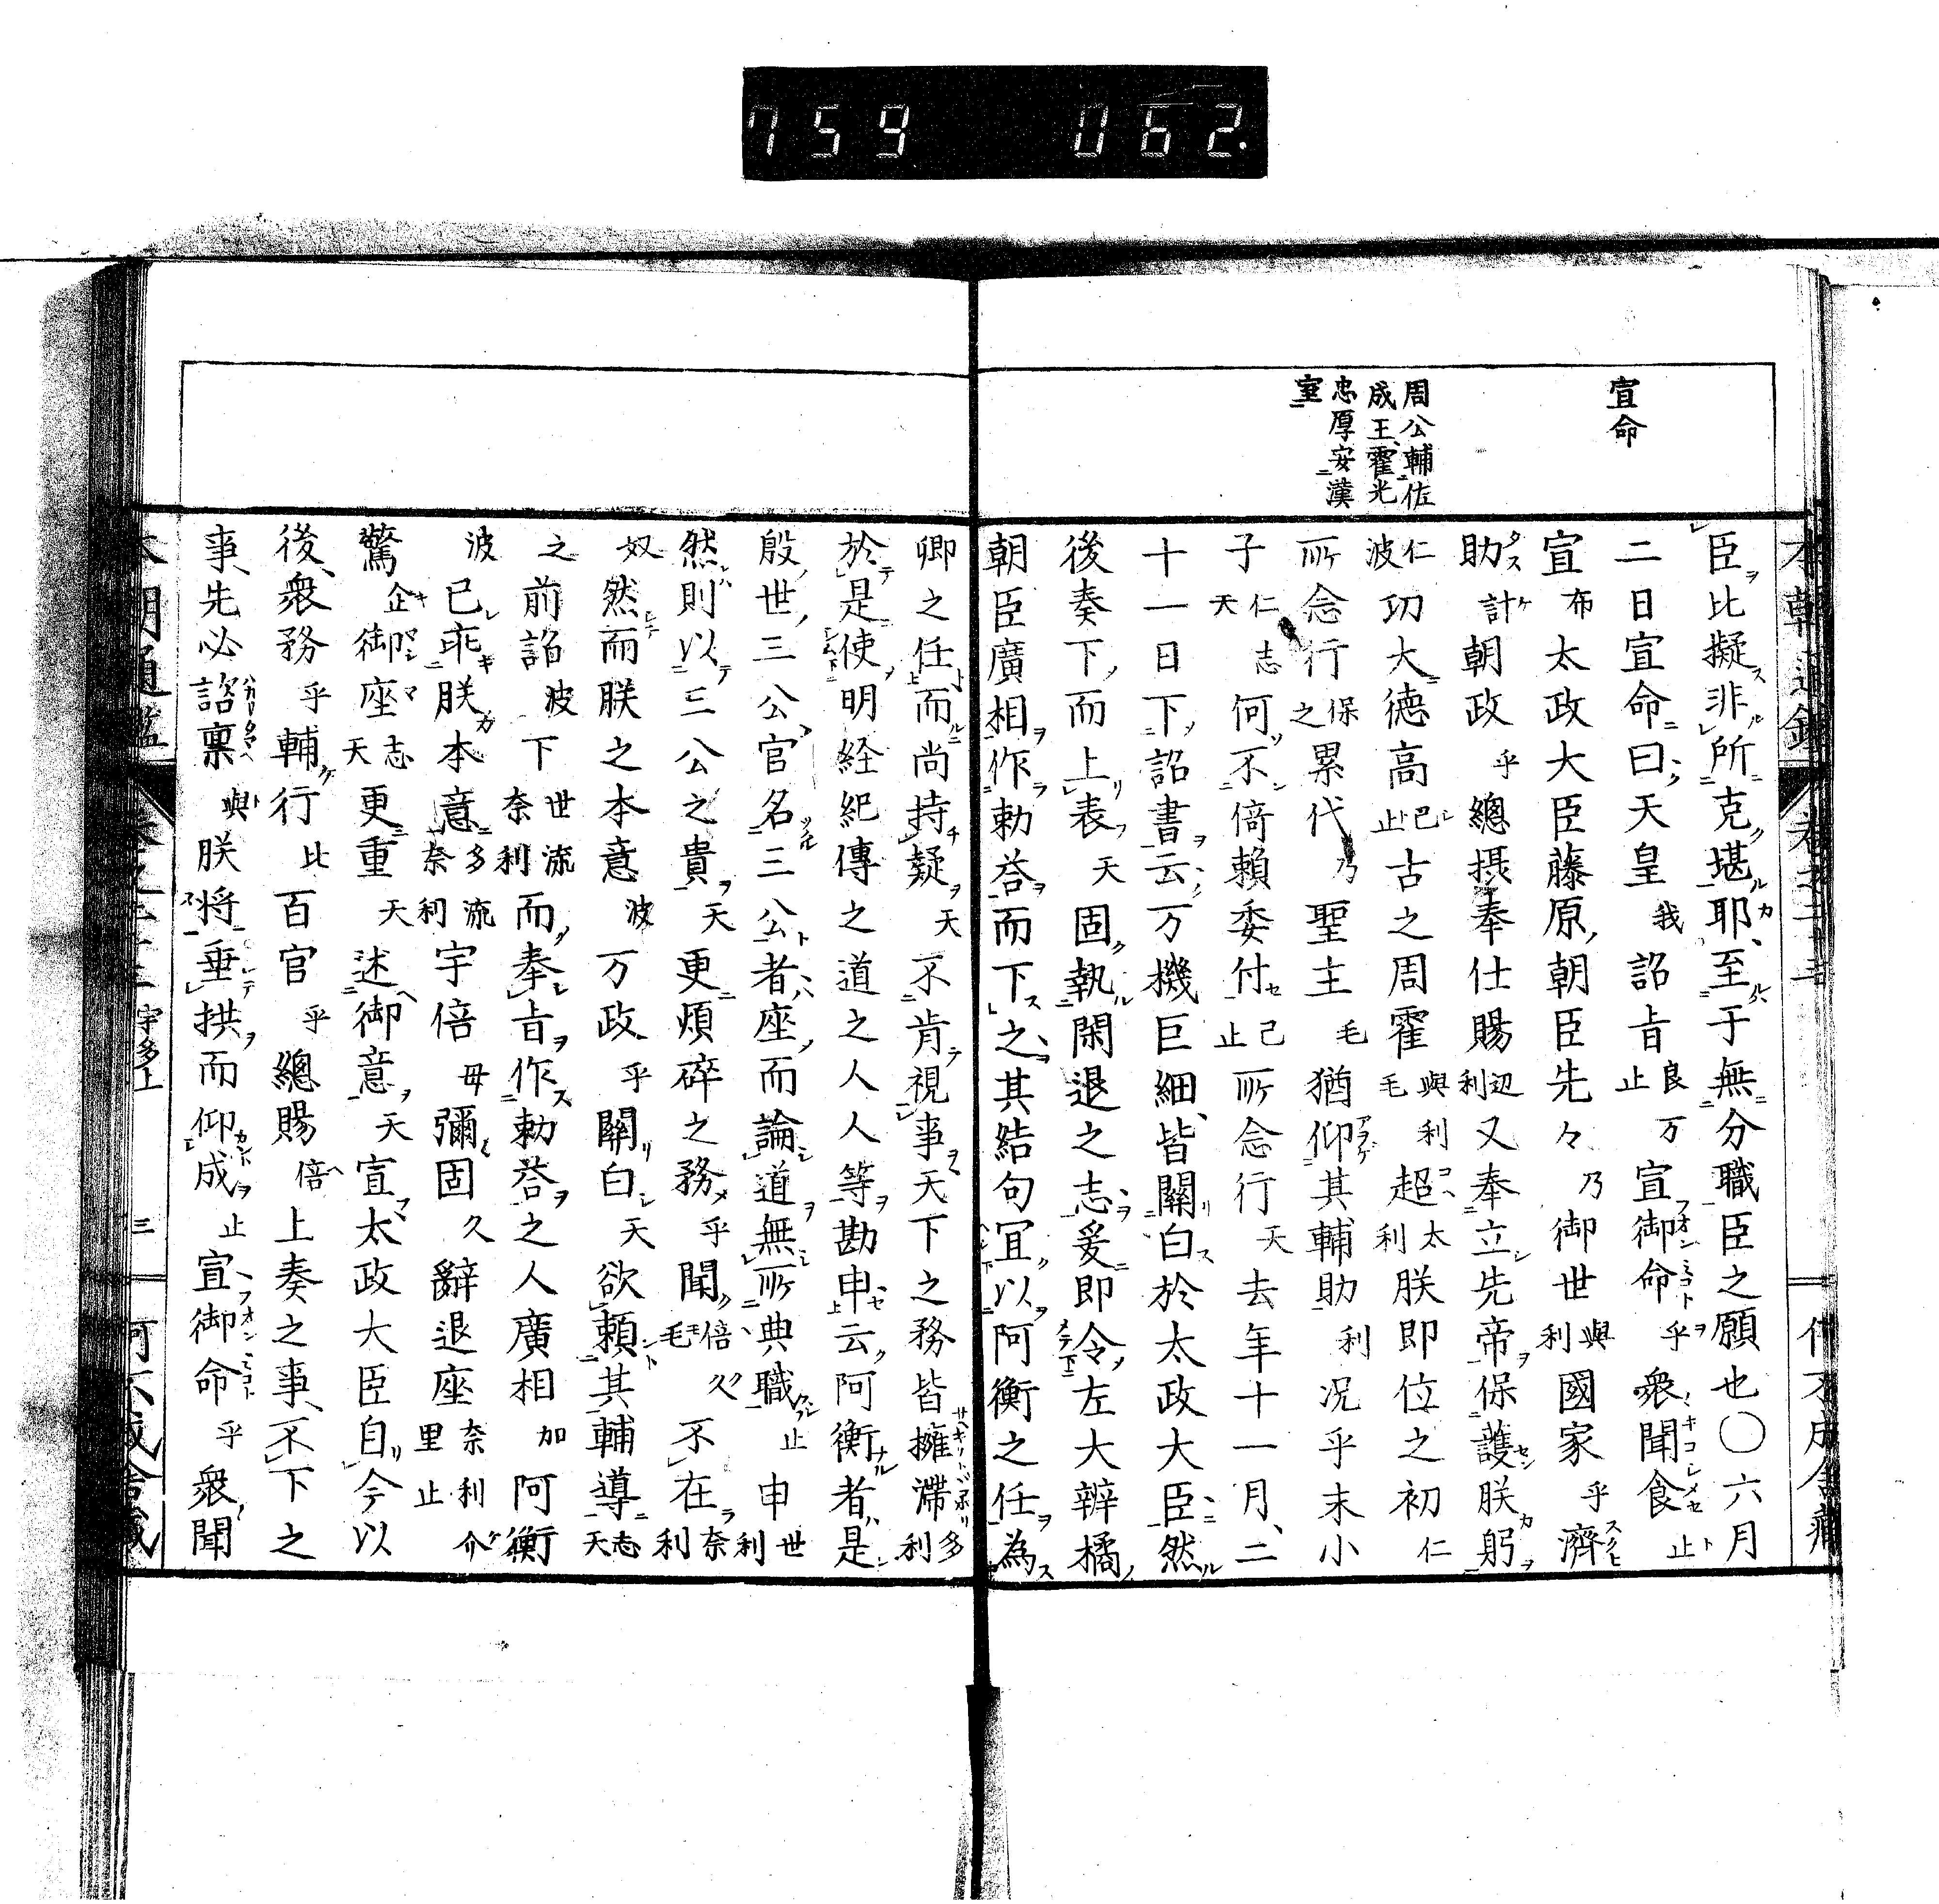 759 062.
宣命
周公輔佐
成王霍光
忠厚安漢
室
臣比擬非所克堪耶至于無分職臣之願也〇六月
二日宣命曰天皇我詔旨良万止宣御命乎衆聞食止
宣布太政大臣藤原朝臣先々乃御世與利國家乎濟
助計朝政乎總攝奉仕賜辺利又奉立先帝保護朕躬
仁波功大德高已止古之周霍與利毛利超太利朕即位之初仁
所念行保之累代乃聖主毛猶仰其輔助利况乎末小
子仁天志何不倚賴委付己止所念行天去年十一月二
十一日下詔書云万機巨細皆關白於太政大臣然
後奏下而上表天固執閑退之志爰即令左大辨橘
朝臣廣相作勅荅而下之其結句冝以阿衡之任為
卿之任而尚持疑天不肯視事天下之務皆擁滯多利
於是使明経紀傳之道之人人等勘申云阿衡者是
殷世三公官名三公者座而論道無所典職止申世利
然則以三公之貴天更煩碎之務乎聞倍毛久不在奈利
奴然而朕之本意波万政乎關白天欲賴其輔導天志
之前詔波下世流奈利而奉旨作勅荅之人廣相加阿衡
波已乖朕本意多流奈利宇倍毋彌固久辭退座奈利里止介
驚企御座志天更重天述御意天宣太政大臣自今以
後衆務乎輔行比百官乎總賜倍上奏之事不下之
事先必諮禀與朕将垂拱而仰成止宣御命乎衆聞